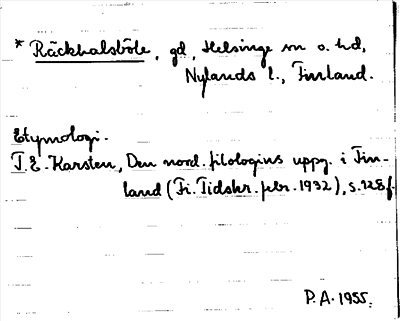 * Räckhalsböle, gd, Helsinge sn o. hd,
Nylands l., Finland.
Etymologi.
T.E. Karsten, Den nord. filologins uppg. i Fin-
land (Fi. Tidskr. febr. 1932), s. 128 f.
P.A. 1955.